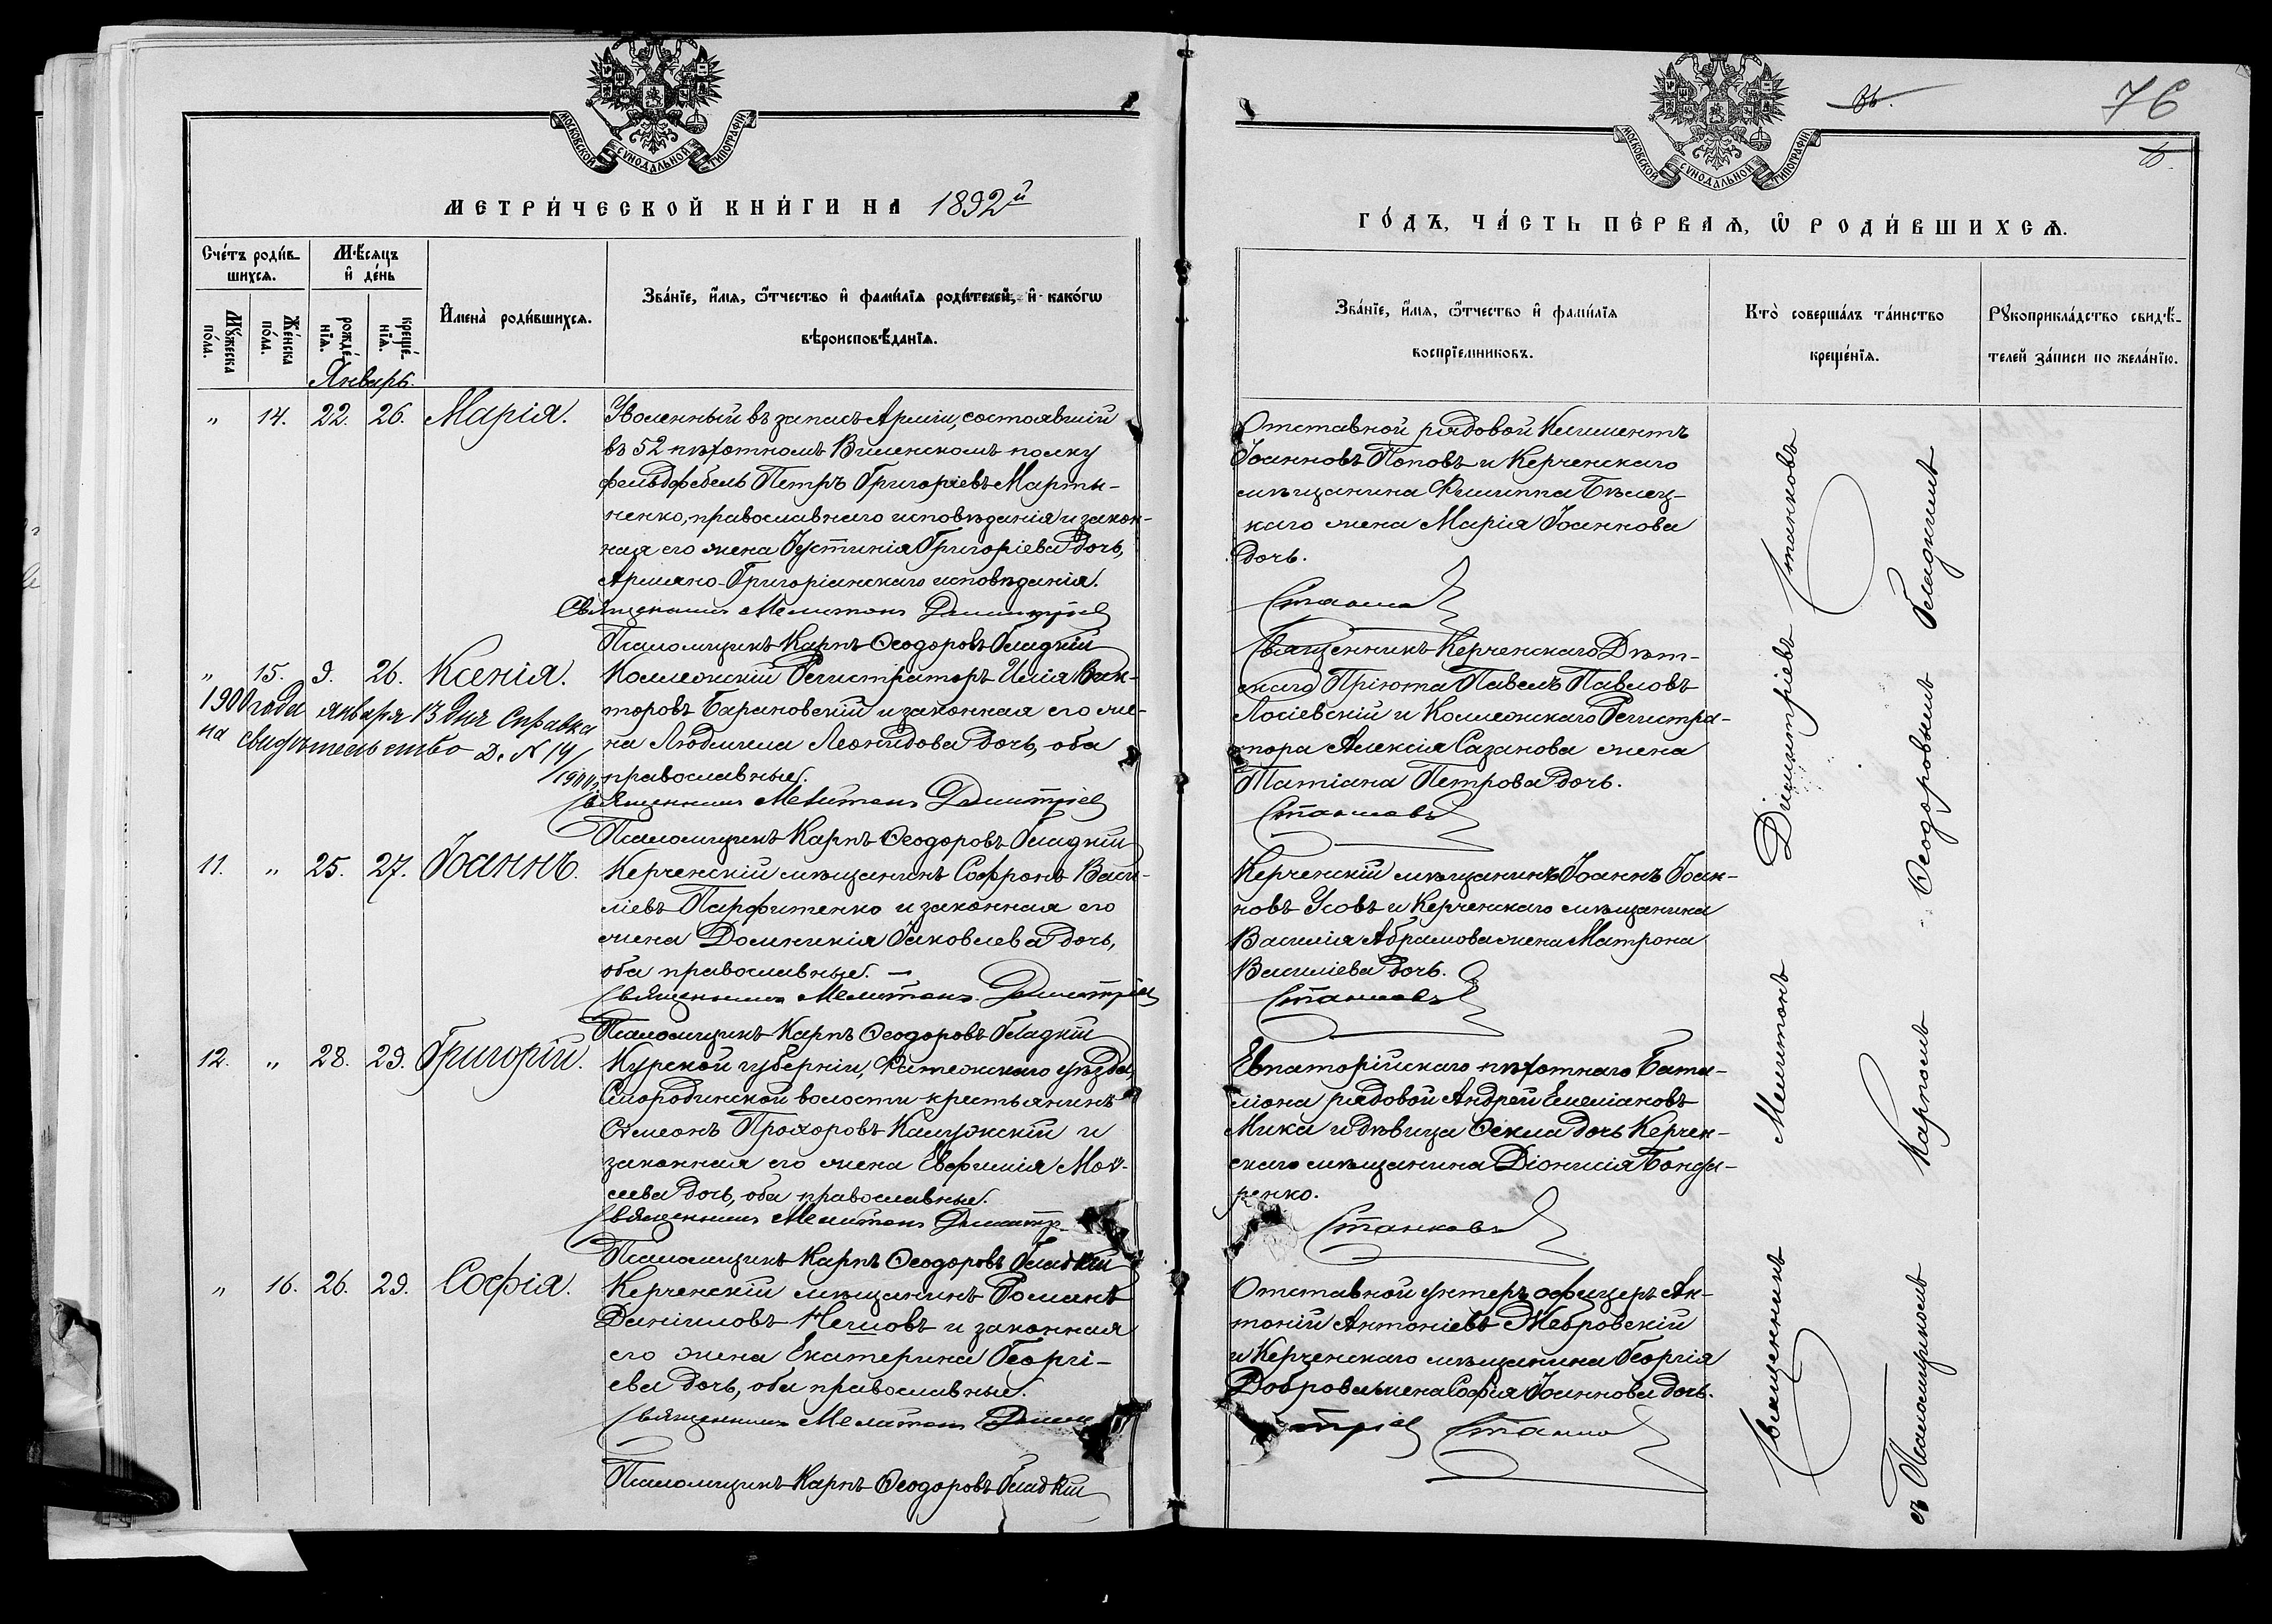 МОСКОВСКОЙ СѴНОДАЛЬНОЙ ТИПОГРАФІИ
МЕТРИ́ЧЕСКОЙ КНИ́ГИ НА 1892й
Сче́тъ роди́в-
шихсѧ.
Мѣ́сѧцъ
и҆ де́нь
Мꙋ́жеска
по́ла.
Же́нска
по́ла.
рожде́-
нїѧ.
креще́-
нїѧ.
И҆мена̀ роди́вшихсѧ.
Зва́нїе, и҆́мѧ, ѻ҆́тчество и҆ фамі́лїѧ роди́телей, и҆ како́гѡ
вѣроисповѣ́данїѧ.
Январь.
" 14. 22. 26. Марія.
Уволенный въ запасъ Арміи, состоявшій
въ 52 пѣхотномъ Виленскомъ полку
фельдфебель Петръ Григоріевъ Марты-
ненко, православнаго исповѣданія и закон-
ная его жена Іустинія Григоріева дочь,
Армяно-Григоріанскаго исповѣданія.
Священникъ Мелитонъ Димитріев
Псаломщикъ Карпъ Ѳеодоровъ Гладкій
" 15. 9. 26. Ксенія.
1900 года января 13 дня Справка
на свидѣтельство Д. N 14/
1900
Коллежскій Регистраторъ Илія Вик-
торовъ Барановскій и законная его же-
на Людмила Леонидова дочь, оба
православные.
Священникъ Мелитонъ Димитріев
Псаломщикъ Карпъ Ѳеодоровъ Гладкій
11. " 25. 27. Іоаннъ.
Керченскій мѣщанинъ Софронъ Васи-
ліевъ Парфитенко и законная его
жена Домникія Іаковлева дочь,
оба православные. —
Священникъ Мелитонъ Димитріев
Псаломщикъ Карпъ Ѳеодоровъ Гладкій
12. " 28. 29. Григорій.
Курской губерніи, Фатежскаго уѣзда,
Смородинской волости крестьянинъ
Сѵмеонъ Прохоровъ Калужскій и
законная его жена Евфимія Моѵ-
сеева дочь, оба православные.
Священникъ Мелитонъ Димитр
Псаломщикъ Карпъ Ѳеодоровъ Гладкій
" 16. 26. 29. Софія.
Керченскій мѣщанинъ Романъ
Даніиловъ и законная
его жена Екатерина Георгі-
ева дочь, оба православные.
Священникъ Мелитонъ Дими
Псаломщикъ Карпъ Ѳеодоровъ Гладкій
76
МОСКОВСКОЙ СѴНОДАЛЬНОЙ ТИПОГРАФІИ
ГО́ДЪ, ЧА́СТЬ ПЕ́РВАѦ, Ѡ҆ РОДИ́ВШИХСѦ.
Зва́нїе, и҆́мѧ, ѻ҆́тчество и҆ фамі́лїѧ
воспрїемниковъ.
Кто̀ соверша́лъ та́инство
креще́нїѧ.
Рꙋкоприкла́дство свидѣ́-
телей за́писи по жела́нїю.
Отставной рядовой Климентъ
Іоанновъ Поповъ и Керченскаго
мѣщанина Филиппа Бѣлец-
каго жена Марія Іоаннова
дочь.
Священникъ Керченскаго Дѣт-
скаго Пріюта Павелъ Павловъ
Лосіевскій и Коллежскаго Регистра-
тора Алексія Сазанова жена
Татіана Петрова дочь.
Керченскій мѣщанинъ Іоаннъ Іоан-
новъ Усовъ и Керченскаго мѣщанина
Василія Абрамова жена Матрона
Василіева дочь.
Евпаторійскаго пѣхотнаго Бата-
ліона рядовой Андрей Емеліановъ
Мика и дѣвица Ѳекла дочь Керчен-
скаго мѣщанина Діонисія Бонда-
ренко.
Станковъ
Отставной унтеръ офицеръ Ан-
тоній Антоніевъ Жебровскій
и Керченскаго мѣщанина Георгія
Доброва жена Софія Іоаннова дочь.
тріев
Священникъ Мелитонъ Димитріевъ Станковъ
съ Псаломщикомъ Карпомъ Ѳеодоровымъ Гладкимъ